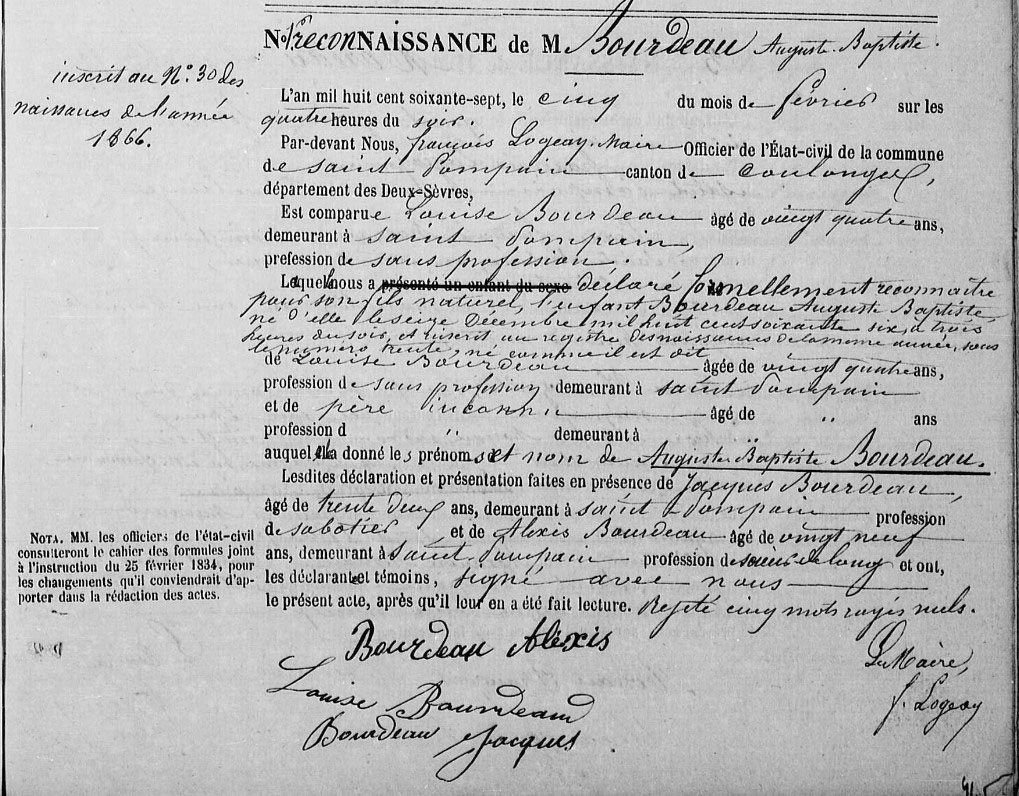 No. reconNAISSANCE de M Bourdeau Auguste Baptiste.
inscrit au N° 30 des
naissances de l'année
1866.
L'an mil huit cent soixante-sept, le cinq du mois de février sur les
quatre heures du soir.
Par-devant Nous, françois Logeay, Maire Officier de l'État-civil de la commune
de saint Pompain canton de Coulonges,
département des Deux-Sèvres,
Est comparue Louise Bourdeau âgé de vingt quatre ans,
demeurant à saint Pompain,
prefession de sans profession.
Laquelle nous a présenté un enfant du sexe déclaré formellement reconnaître
pour son fils naturel, l'enfant Bourdeau Auguste Baptiste,
né d'elle le seize Décembre mil huit cent soixante six, à trois
heures du soir, et inscrit au registre des naissances de la même année, sous
le numéro trente, né comme il est dit
de Louise Bourdeau âgée de vingt quatre ans,
profession de sans profession demeurant à saint Pompain
et de père inconnu âgé de " ans
profession d " demeurant à "
auquel elle a donné les prénoms et nom de Auguste Baptiste Bourdeau.
Lesdites déclaration et présentation faites en présence de Jacques Bourdeau,
âgé de trente deux ans, demeurant à saint Pompain profession
de sabotier et de Alexis Bourdeau âgé de vingt neuf
ans, demeurant à saint Pompain profession de scieur de long et ont,
les déclarante et témoins, signé avec nous
le présent acte, après qu'il leur en a été fait lecture. Rejeté cinq mots rayés nuls.
NOTA. MM. les officiers de l'état-civil
consulteront le cahier des formules joint
à l'instruction du 25 février 1834, pour
les changements qu'il conviendrait d'ap-
porter dans la rédaction des actes.
Bourdeau Alexis
Le Maire,
Louise Bourdeaud
f. Logeay
Bourdeau Jacques